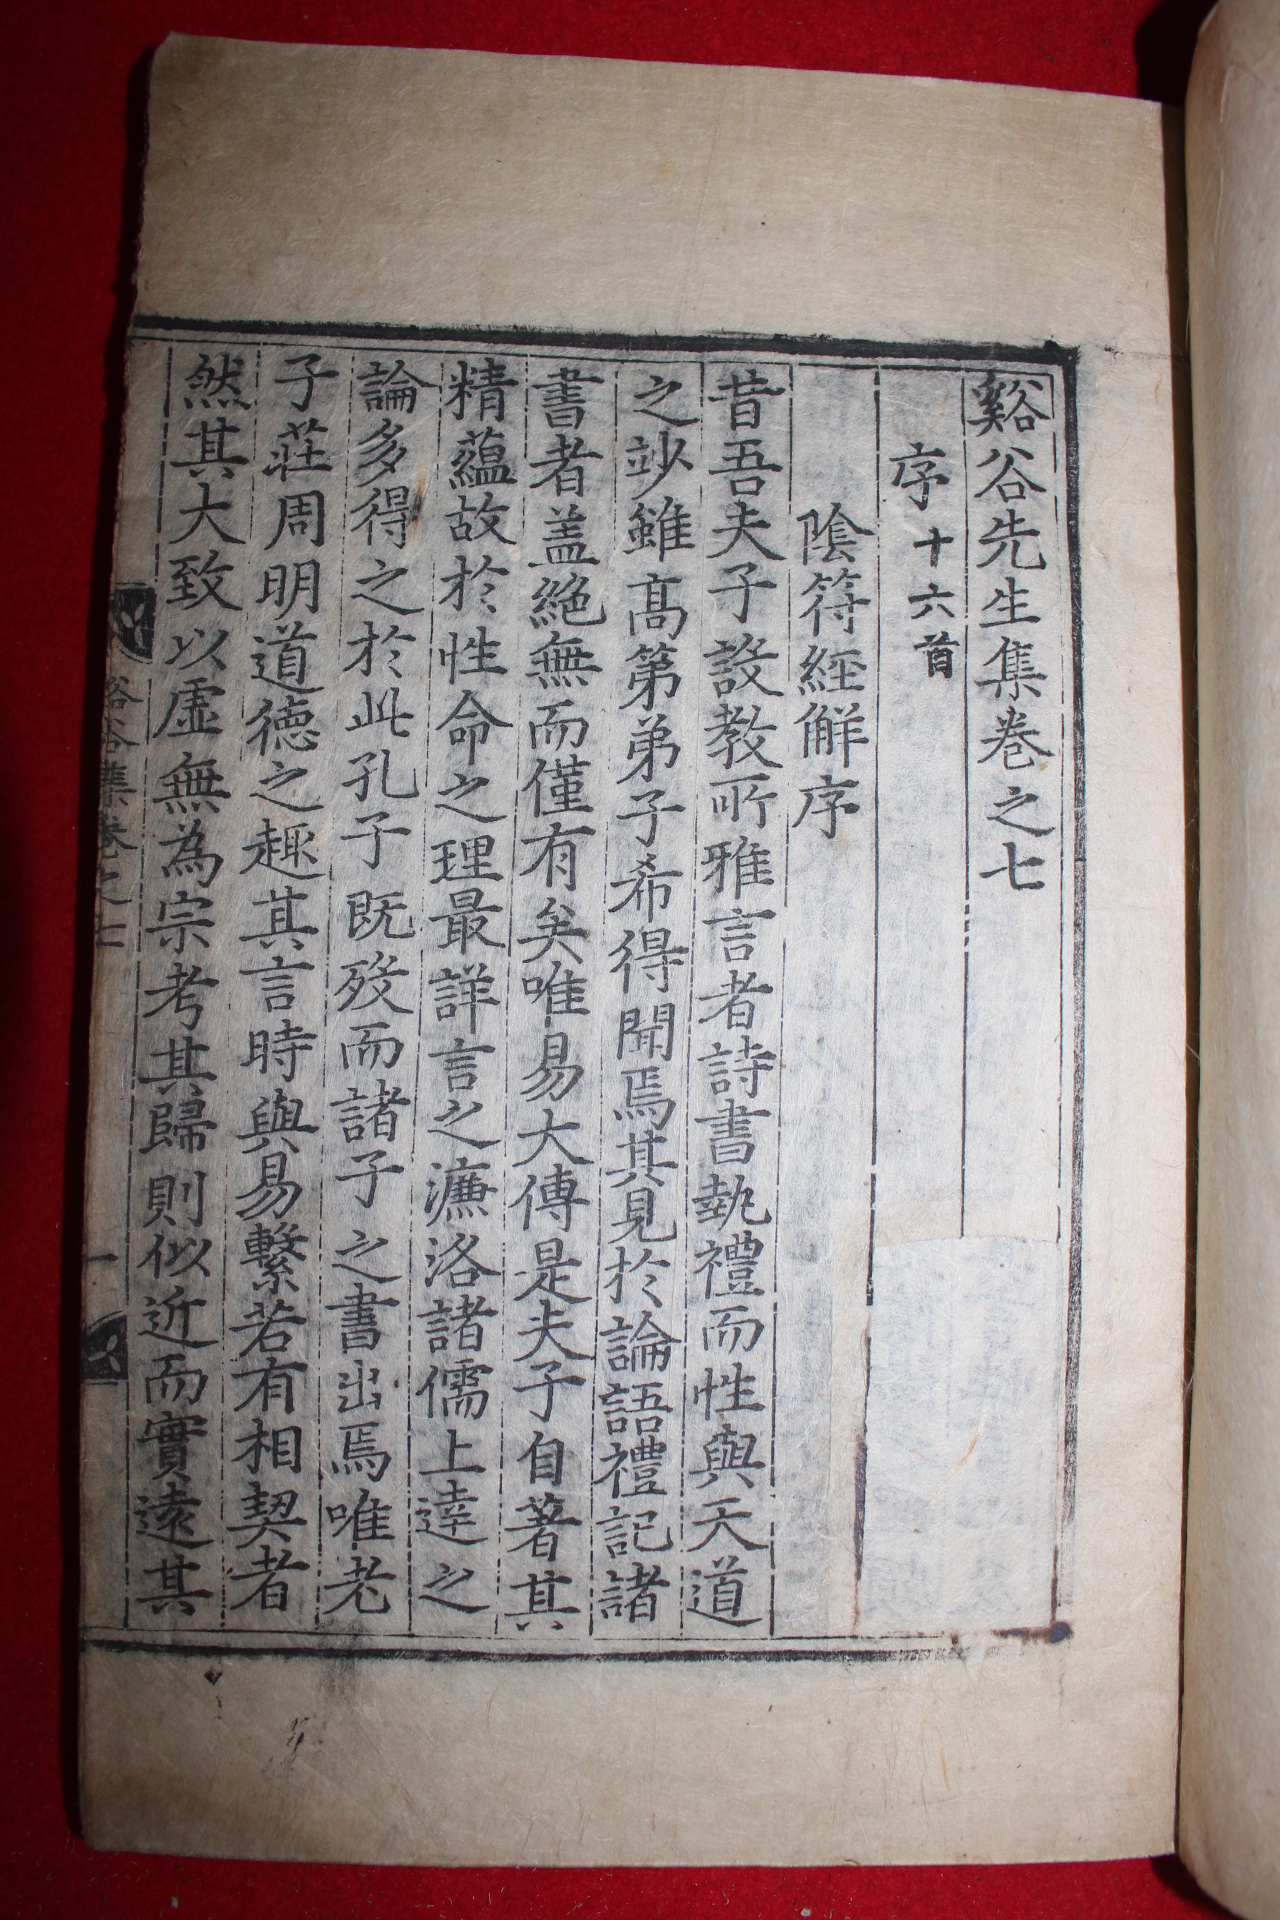 谿谷先生集卷之七
序十六首
陰符經解序
昔吾夫子設教所雅言者詩書執禮而性與天道
之妙雖高第弟子希得聞焉其見於論語禮記諸
書者盖絕無而僅有矣唯易大傳是夫子自著其
精蘊故於性命之理最詳言之濂洛諸儒上達之
論多得之於此孔子既歿而諸子之書出焉唯老
子莊周明道德之趣其言時與易繫若有相契者
然其大致以虛無為宗考其歸則似近而實遠其
谿谷集卷之七
一